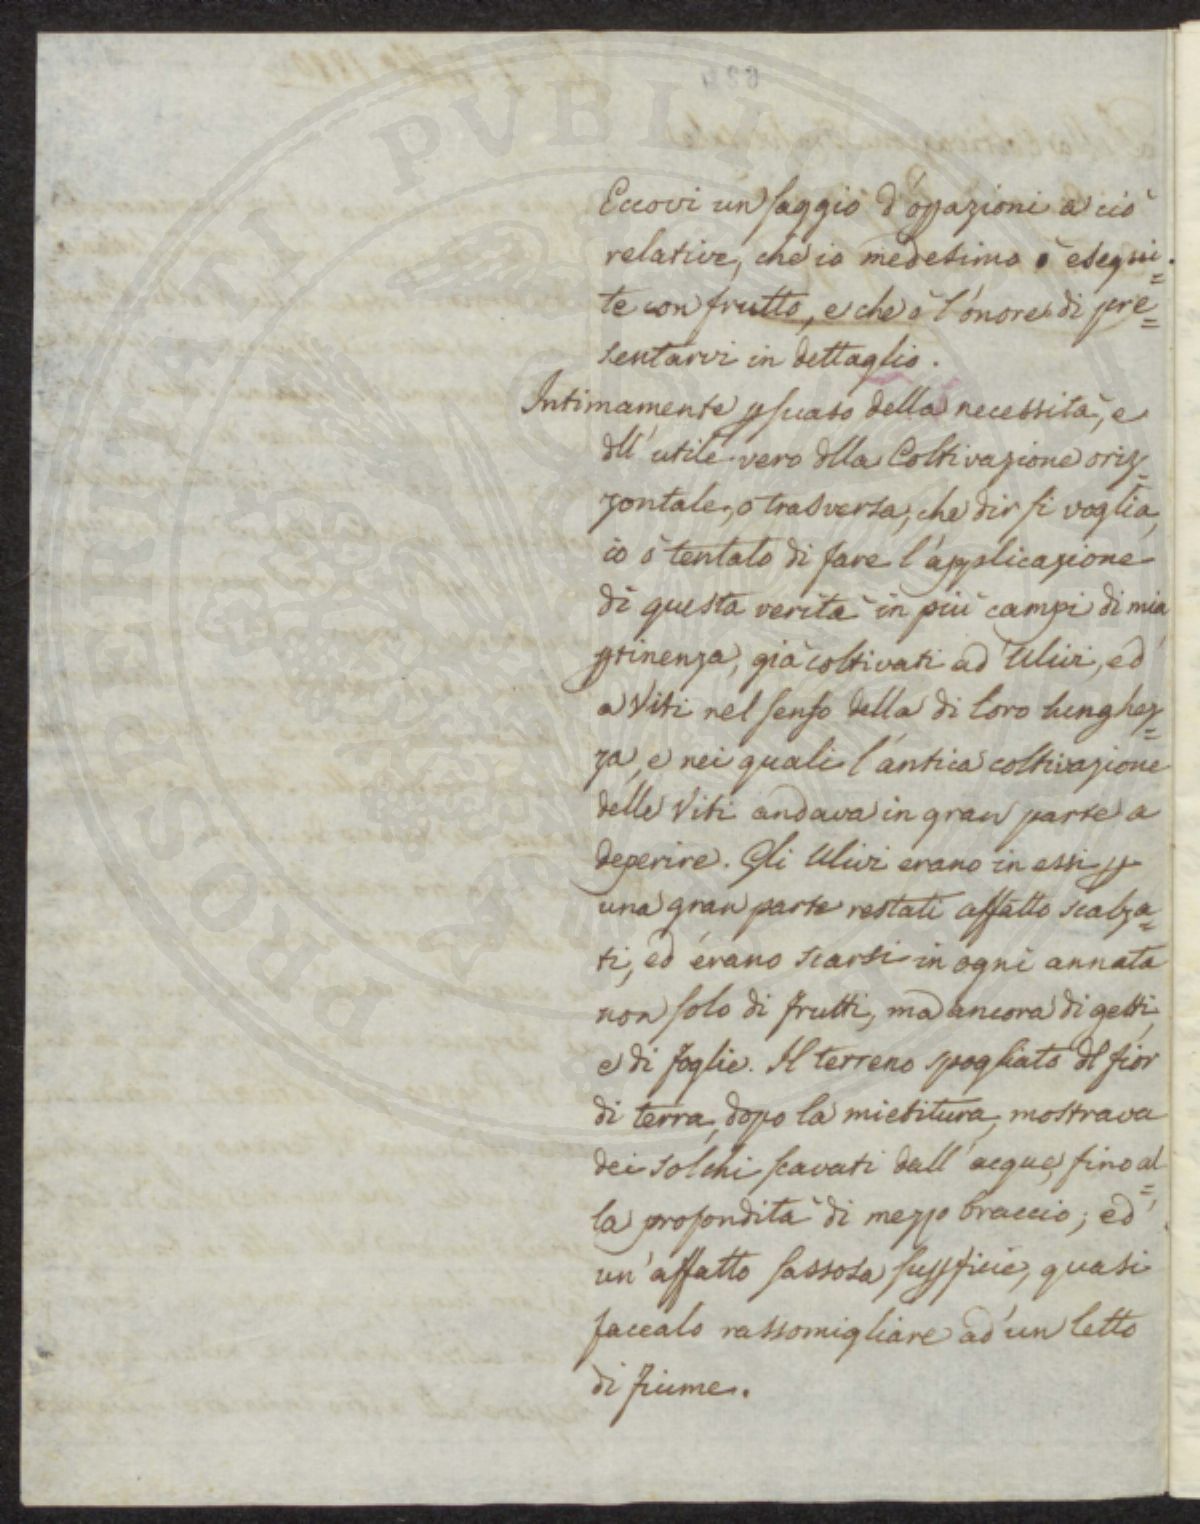 Eccovi un saggio d'oppazioni a ciò
relative, che io medesimo ò esegui=
te con frutto, e che ò l'onore di pre=
sentarvi in dettaglio.
Intimamente psuaso della necessità, e
dll'utile vero dlla Coltivazione oriz=
zontale, o trasversa, che dir si voglia,
io ò tentato di fare l'applicazione
di questa verità in più campi di mia
ptinenza, già coltivati ad Ulivi, ed
a Viti nel senso della di loro lunghez=
za, e nei quali l'antica coltivazione
delle Viti andava in gran parte a
deperire. Gli Ulivi erano in essi p
una gran parte restati affatto scalza=
ti, ed erano scarsi in ogni annata
non solo di frutti, ma ancora di getti,
e di foglie. Il terreno spogliato dl fior
di terra, dopo la mietitura, mostrava
dei solchi scavati dall'acque, fino al=
la profondità di mezzo braccio; ed
un'affatto sassosa suppficie, quasi
facealo rassomigliare ad un letto
di fiume.
PROSPERITATI PUBLICAE